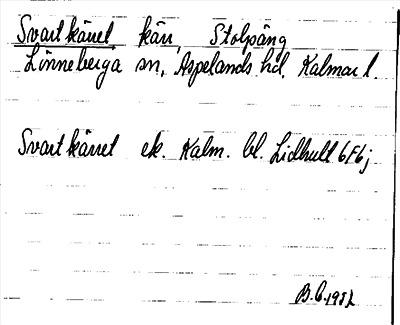 Svartkärret kärr, Stolpäng
Lönneberga sn, Aspelands hd. Kalmar l.
Svartkärret ek. Kalm. bl. Lidhult 6F6j
B.C. 1982